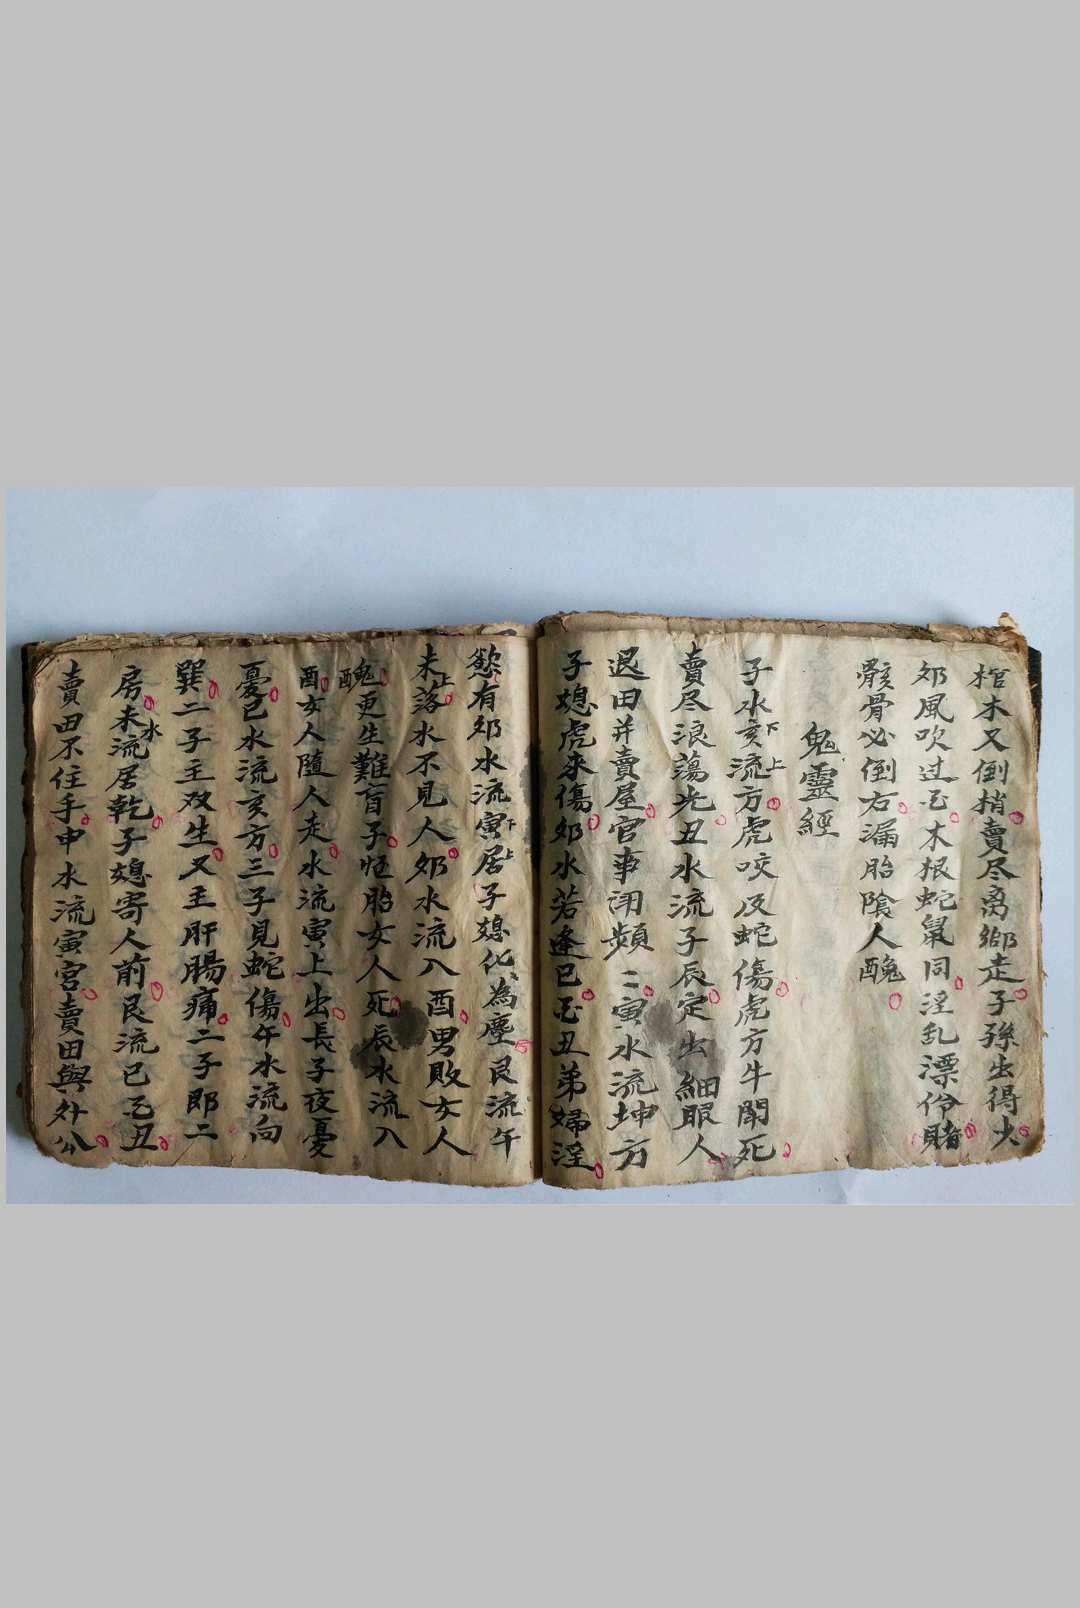 棺木又倒梢賣尽离鄉走子孫出得火
郊風吹过石木根蛇鼠同淫乱漂伶賭
骸骨必倒右漏胎陰人醜
鬼靈經
子水亥下流上方虎咬及蛇傷虎方牛鬪死
賣尽浪蕩光丑水流子辰定出細眼人
退田并賣屋官事詞頻二寅水流坤方
子媳虎來傷卯水若逢巳乙丑弟婦淫
慾有卯水流寅下居上子媳化為塵艮流午
未上落水不見人卯水流入酉男敗女人
醜更生難盲子怪胎女人死辰水流入
酉女人隨人走水流寅上出長子夜憂
憂巳水流亥方三子見蛇傷午水流向
巽二子主双生又主肝腸痛二子郎二
房未水流居乾子媳寄人前艮流巳乙丑
賣田不住手申水流寅宮賣田與外公